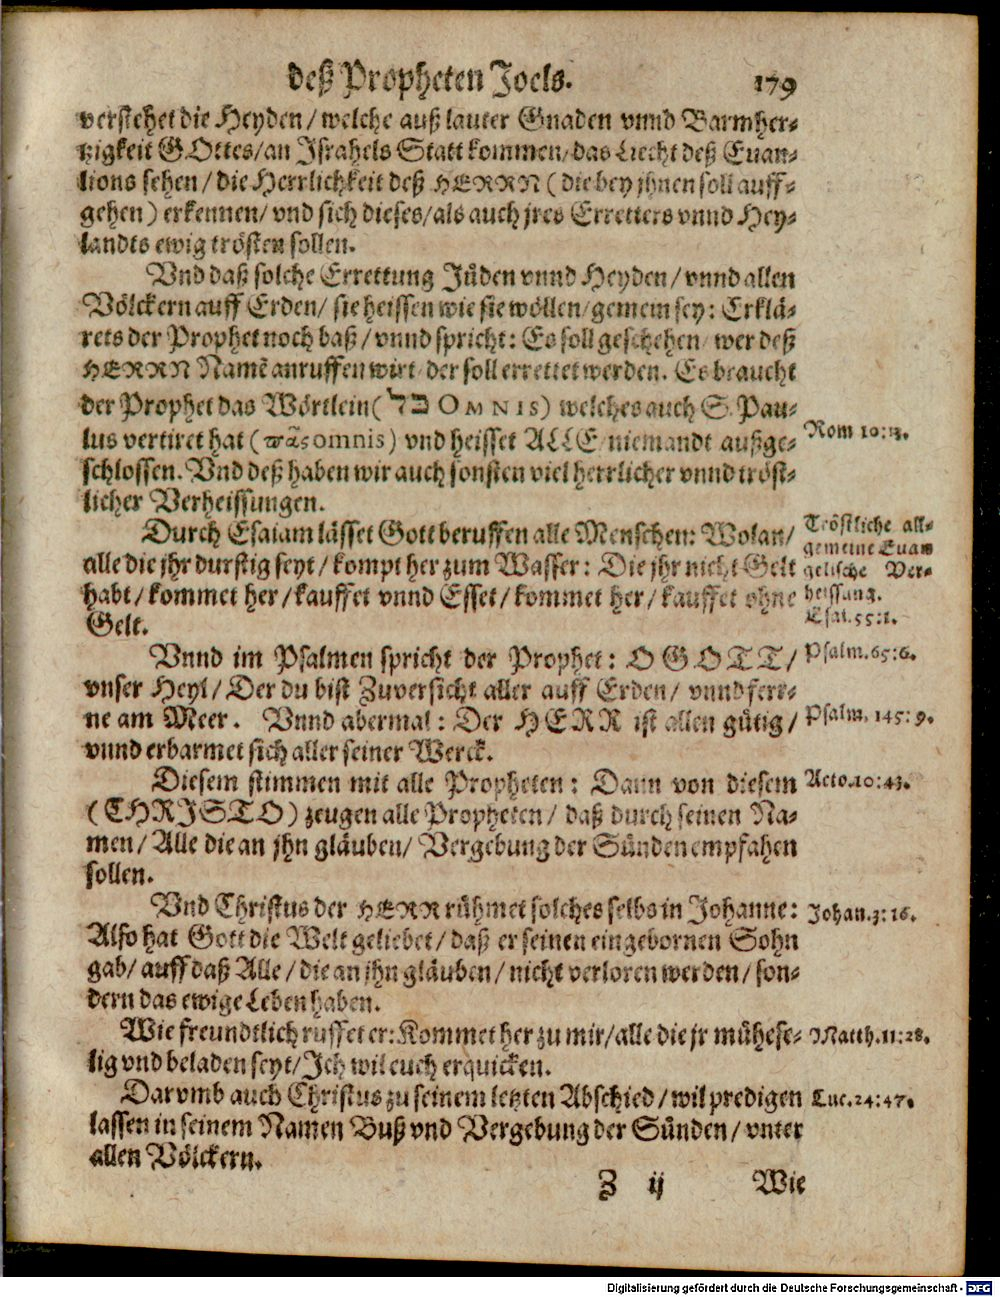 deß Propheten Joels. 179
verstehet die Heyden/ welche auß lauter Gnaden vnnd Barmher-
tzigkeit GOttes/ an Israhels Statt kommen/ das Liecht deß Euan-
lions sehen/ die Herrlichkeit deß HERRN (die bey jhnen soll auff-
gehen) erkennen/ vnd sich dieses/ als auch jres Erretters vnnd Hey-
landts ewig trösten sollen.
Vnd daß solche Errettung Jüden vnnd Heyden/ vnnd allen
Völckern auff Erden/ sie heissen wie sie wöllen/ gemein sey: Erklä-
rets der Prophet noch baß/ vnnd spricht: Es soll geschehen/ wer deß
HERRN Namẽ anruffen wirt/ der soll errettet werden. Es braucht
der Prophet das Wörtlein (כל OMNIS) welches auch S. Pau-
lus vertiret hat (πᾶς omnis) vnd heisset ALLE/ niemandt außge-
schlossen. Vnd deß haben wir auch sonsten viel herrlicher vnnd tröst-
licher Verheissungen.
Rom 10:13.
Durch Esaiam lässet Gott beruffen alle Menschen: Wolan/
alle die jhr durstig seyt/ kompt her zum Wasser: Die jhr nicht Gelt
habt/ kommet her/ kauffet vnnd Esset/ kommet her/ kauffet ohne
Gelt.
Tröstliche all-
gemeine Euan
gelische Ver-
heissung.
Esai. 55:1.
Vnnd im Psalmen spricht der Prophet: O GOTT/
vnser Heyl/ Der du bist Zuversicht aller auff Erden/ vnnd fer-
ne am Meer. Vnnd abermal: Der HERR ist allen gütig/
vnnd erbarmet sich aller seiner Werck.
Psalm. 65:6.
Psalm. 145:9.
Diesem stimmen mit alle Propheten: Dann von diesem
(CHRISTO) zeugen alle Propheten/ daß durch seinen Na-
men/ Alle die an jhn gläuben/ Vergebung der Sünden empfahen
sollen.
Acto. 10:43.
Vnd Christus der HERR rühmet solches selbs in Johanne:
Also hat Gott die Welt geliebet/ daß er seinen eingebornen Sohn
gab/ auff daß Alle/ die an jhn gläuben/ nicht verloren werden/ son-
dern das ewige Leben haben.
Johan. 3:16.
Wie freundtlich ruffet er: Kommet her zu mir/ alle die jr mühese-
lig vnd beladen seyt/ Ich wil euch erquicken.
Matth. 11:28.
Darvmb auch Christus zu seinem letzten Abschied/ wil predigen
lassen in seinem Namen Buß vnd Vergebung der Sünden/ vnter
allen Völckern.
Luc. 24:47.
Z ij Wie
Digitalisierung gefördert durch die Deutsche Forschungsgemeinschaft - DFG